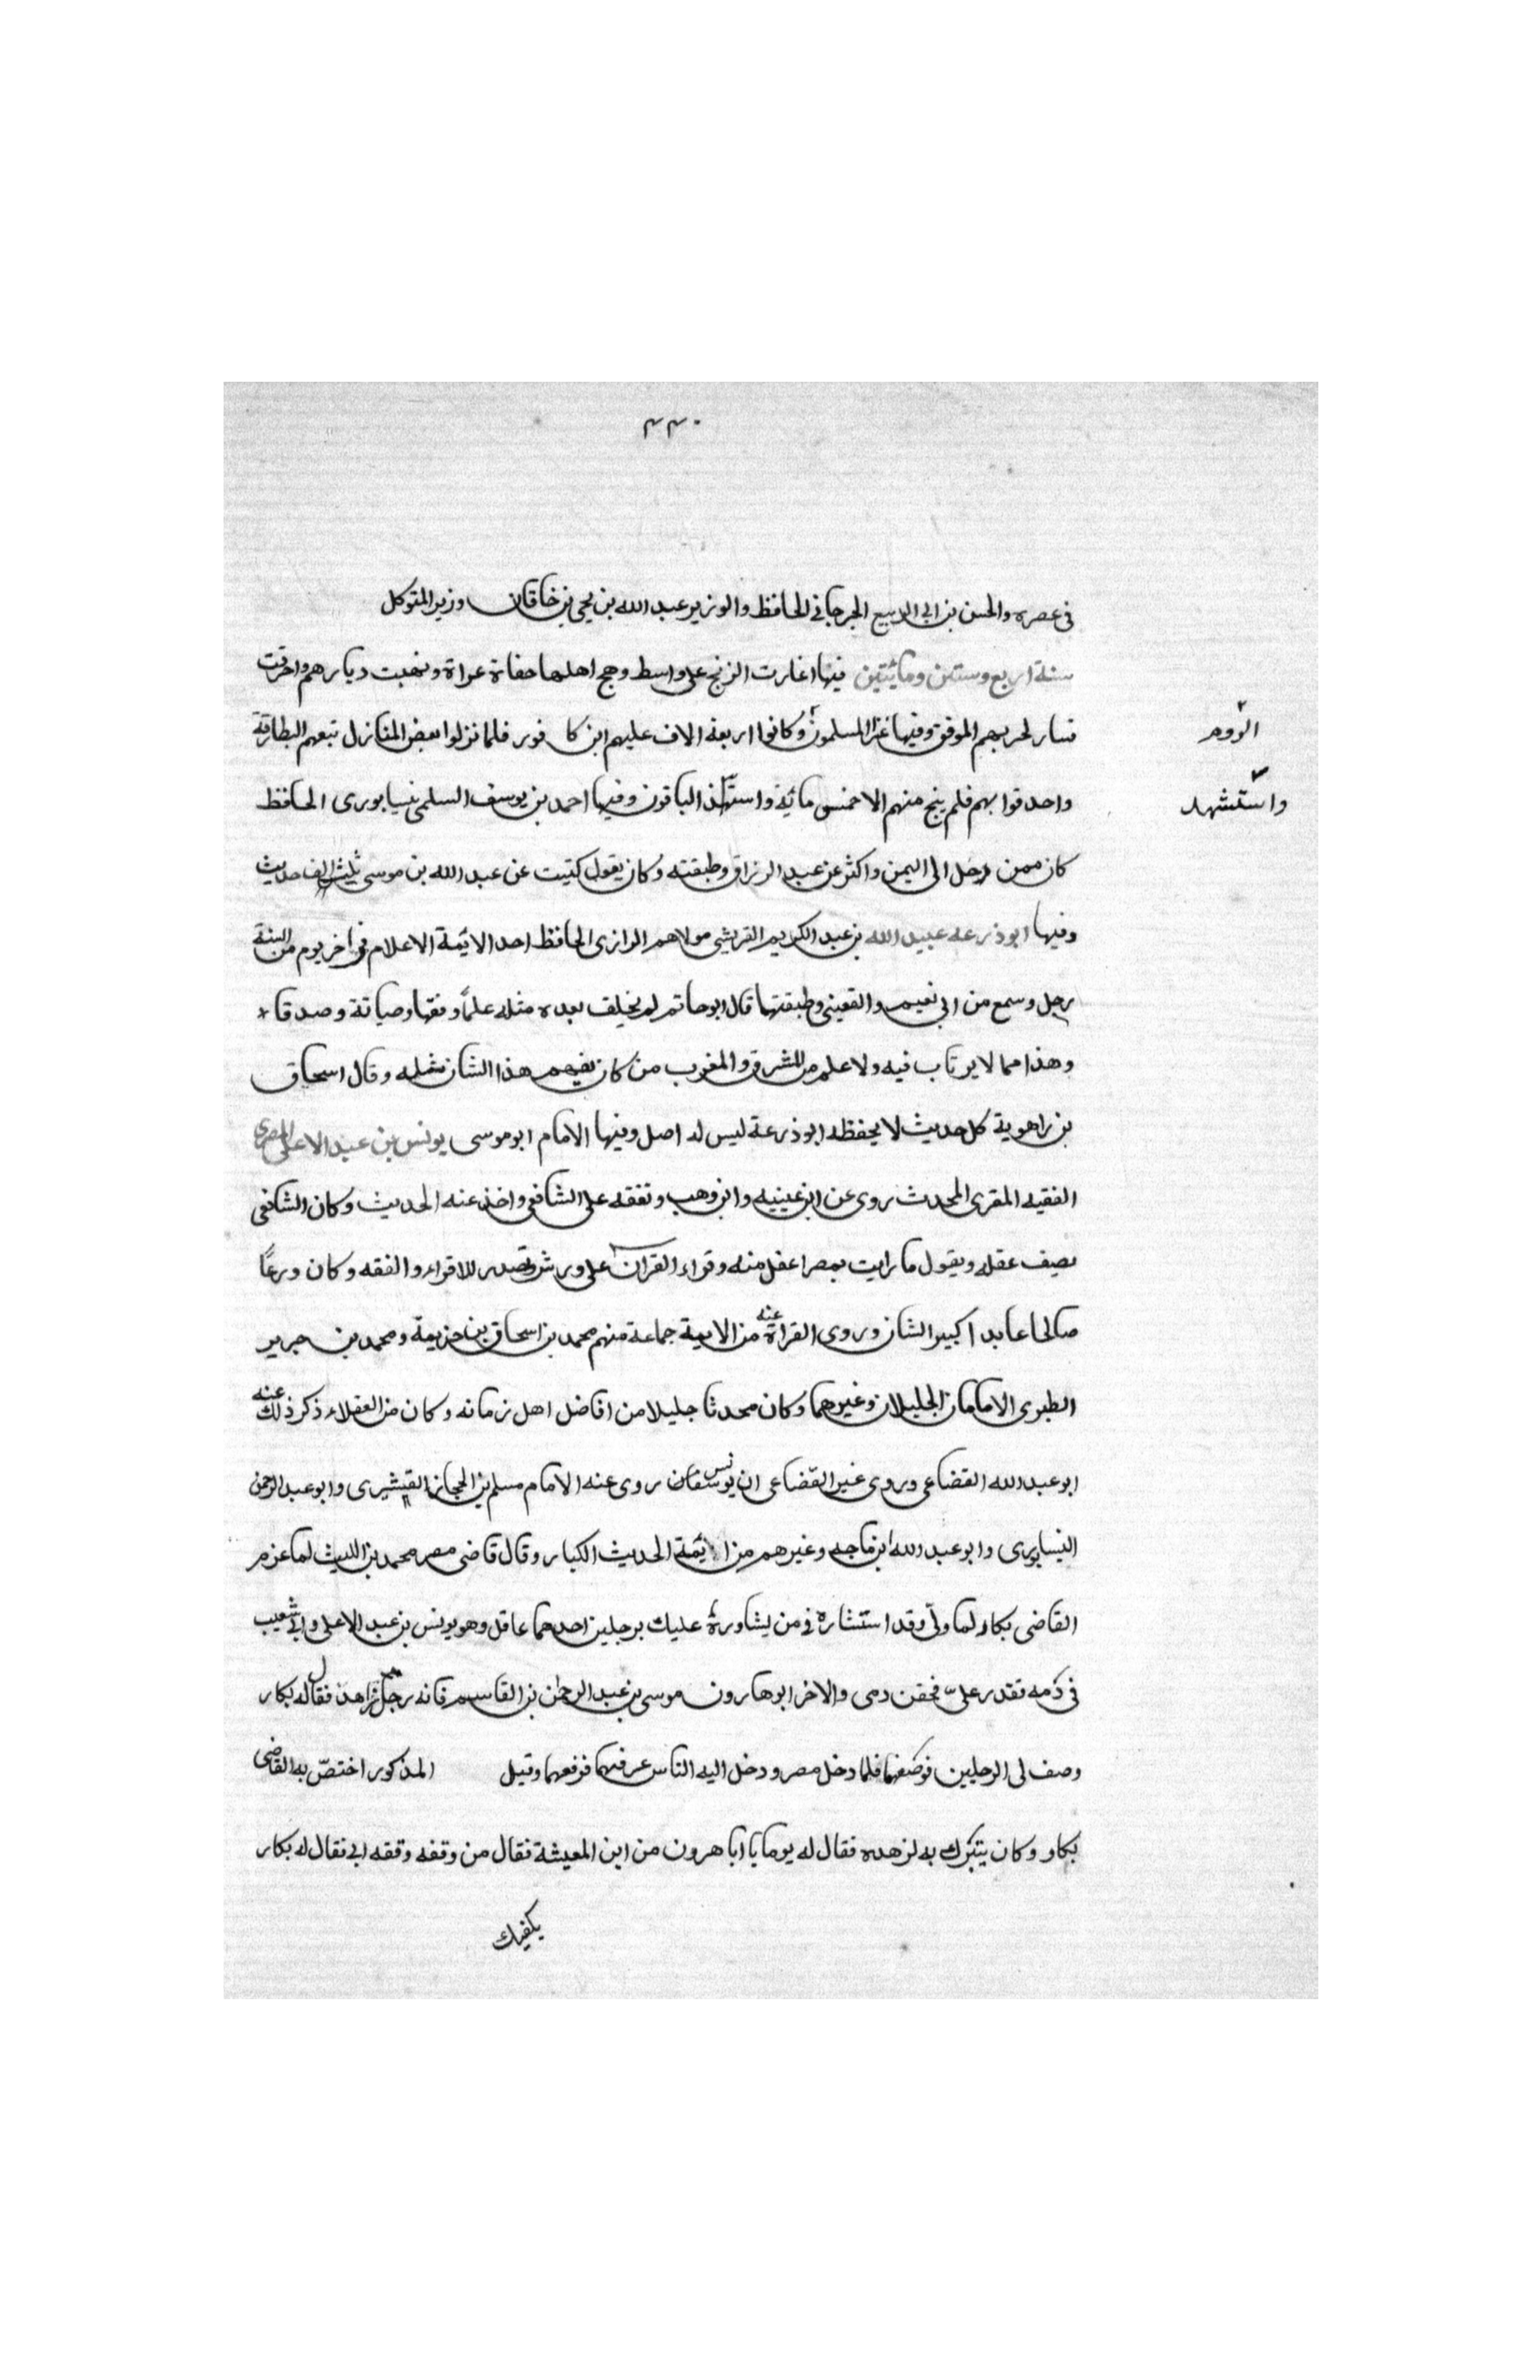 ٤٤٠
في عصره والحسن بن ابي الربيع الجرجاني الحافظ والوزير عبد الله بن يحيى بن خاقان وزير المتوكل
سنة اربع وستين ومائيتين فيها اغارت الزنج على واسط وهج اهلها حفاة عراة ونهبت ديارهم واحرقت
فسار لحربهم الموفق وفيها غزا المسلمون وكانوا اربعة الاف عليهم ابن كافور فلما نزلوا بعض المنازل تبعهم البطارقة
الروم
واحدقوا بهم فلم ينج منهم الا خمس مائة واستهذ الباقون وفيها احمد بن يوسف السلمي نيسابورى الحافظ
واستشهد
كان ممن رحل الى اليمن واكثر عن عبد الرزاق وطبقته وكان يقول كتبت عن عبد الله بن موسى ثلثين الف حديث
وفيها ابوذرعه عبيد الله بن عبد الكريم القريشي مولاهم الرازى الحافظ احد الايمة الاعلام في اخر يوم من السنة
رحل وسمع من ابي نعيم والقعنبي وطبقتهما قال ابو حاتم لم يخلف بعده مثله علمًا وفقها وصيانة وصدقا
وهذا مما لا يرتاب فيه ولا علم من المشرق والمغرب من كان يفهم هذا الشان مثله وقال اسحاق
بن راهوية كل حديث لا يحفظه ابوذرعة ليس له اصل وفيها الامام ابو موسى يونس بن عبد الاعلى المصرى
الفقيه المقرى المحدث روى عن ابن عيينه وابن وهب وتفقه على الشافعي واخذ عنه الحديث وكان الشافعي
يصف عقله ويقول ما رايت بمصر اعقل منه وقراء القران على ورش وتصدر للاقراء والفقه وكان ورعًا
صالحا عابدا كبير الشان وروى القراة عنه من الايمة جماعة منهم محمد بن اسحاق بن خزيمة ومحمد بن جرير
الطبرى الامامان الجليلان وغيرهما وكان محدثا جليلا من افاضل اهل زمانه وكان من العقلاء ذكر ذلك عنه
ابو عبد الله القضاعي وروى غير القضاعي ان يونس روى عنه الامام مسلم بن الحجاز القيشيرى وابو عبد الرحمن
النيسابورى وابو عبد الله ابن ماجه وغيرهم من ائمة الحديث الكبار وقال قاضى مصر محمد بن الليث لما عزم
القاضى بكار لما ولّى وقد استشاره في من يشاوره عليك برجلين احدهما عاقل وهو يونس بن عبد الاعلى وابى شعيب
في دمه تقدر علىّ فحقن دمى والاخر ابو هارون موسى بن عبد الرحمن بن القاسم فانه رجل زاهد فقال له بكار
وصف لى الرجلين فوصفهما فلما دخل مصر ودخل اليه الناس عرفهما فرفعهما وقيل المذكور اختصّ به القاضى
بكار وكان يتبرك به لزهده فقال له يوما يا ابا هرون من اين المعيشة فقال من وقفه وقفه ابى فقال له بكار
يكفيك